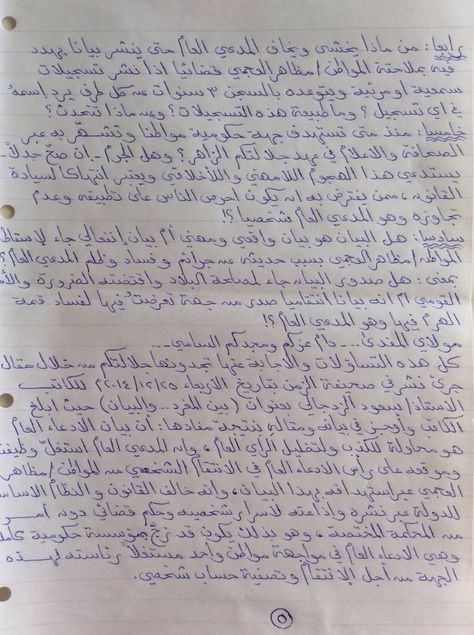 رابعا: من ماذا يخشى ويخاف المدعي العام حتى ينشر بيانا يهدد
فيه بملاحقة المواطن/مظاهر العجمي قضائيا اذا نشر تسجيلات
سمعية او مرئية ويتوعده بالسجن ٣ سنوات عن كل طرف يرد اسمه
في اي تسجيل؟ وما طبيعة هذه التسجيلات؟ وعن ماذا تتحدث؟
خامسا: منذ متى تستهدف جهة حكومية مواطنا وتشهّر به عبر
الصحافة والاعلام في عهد جلالتكم الزاهر؟ وهل الجرم - ان صحّ جدلاً -
يستدعي هذا الهجوم اللامهني واللاأخلاقي ويعتبر انتهاكا لسيادة
القانون، ممن يفترض به انه يكون احرص الناس على تطبيقه وعدم
تجاوزه وهو المدعي العام شخصيا؟!
سادسا: هل البيان هو بيان واقعي ومهني أم بيان إنفعالي جاء لاستغلال
المواطن/مظاهر العجمي بسبب حديثه عن جرائم وفساد وظلم المدعي العام؟
بمعنى: هل صدور البيان جاء لمصلحة البلاد واقتضته الضرورة
القومي ام انه بيانا انتقاميا صدر من جهة تعرضت فيها لفساد قمة
الهرم فيها وهو المدعي العام؟!
مولاي المفدى.... دام عزكم ومجدكم السامي....
كل هذه التساؤلات والاجابة عنها تجدونها جلالتكم من خلال مقال
جرى نشر في صحيفة الزمن بتاريخ الاربعاء ٢٠١٤/١٢/٢٥ للكاتب
الاستاذ/سعود الزدجالي بعنوان (بين المخرد.. والبيان) حيث ابلغ
الكاتب وأوجز في بيانه ومقاله بنتيجة مفادها: أن بيان الادعاء العام
هو محاولة للكذب ولتضليل الرأي العام، وانه المدعي العام استغل وظيفته
وموقعه على رأس الادعاء العام في الانتقام الشخصي من المواطن/مظاهر
العجمي عبر استهدافه بهذا البيان، وانه خالف القانون والنظام الاساسي
للدولة عبر نشره واذاعته لأسرار شخصية وحكم قضائي دون أمر
من المحكمة المختصة، وهو بذلك يكون قد زجّ بمؤسسة حكومية كاملة
وهي الادعاء العام في مواجهة مواطن واحد مستغلاً رئاسته لهذه
الجهة من أجل الإنتقام وتصفية حساب شخصي.
٥